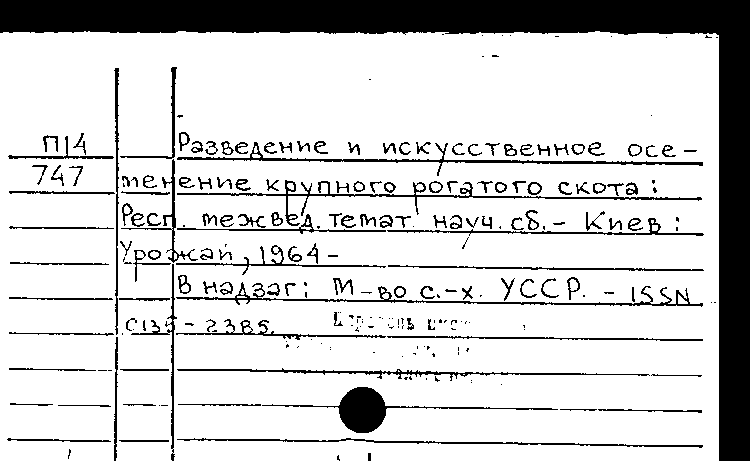 П14
747
Разведение и искусственное осе-
менение крупного рогатого скота:
Респ. межвед. темат. науч. сб. - Киев:
Урожай, 1964-
В надзаг: М-во с.-х. УССР. - ISSN
0135-2385.